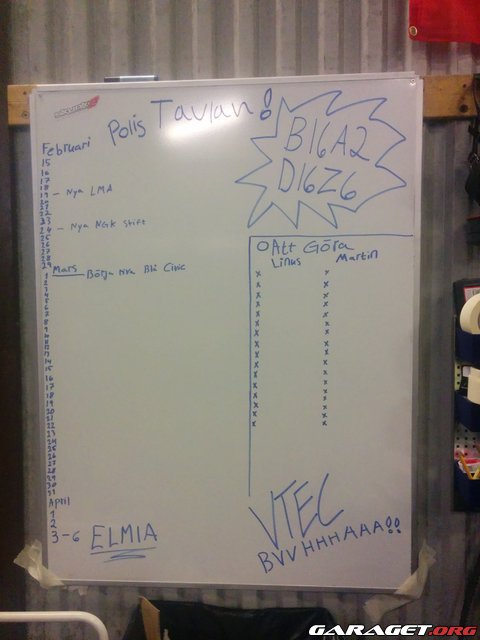 Polis Tavlan!
B16A2
D16Z6
Februari
15
16
17
18
19 - Nya LMA
20
21
22
23
24 - Nya NGK Stift
25
26
27
28
29
Mars
1 Börja Nya Blå Civic
2
3
4
5
6
7
8
9
10
11
12
13
14
15
16
17
18
19
20
21
22
23
24
25
26
27
28
29
30
31
April
1
2
3-6 ELMIA
Att Göra
Linus Martin
x x
x x
x x
x x
x x
x x
x x
x x
x x
x x
x x
x x
x x
x x
VTEC
BVVHHHAAA!!
GARAGET.ORG